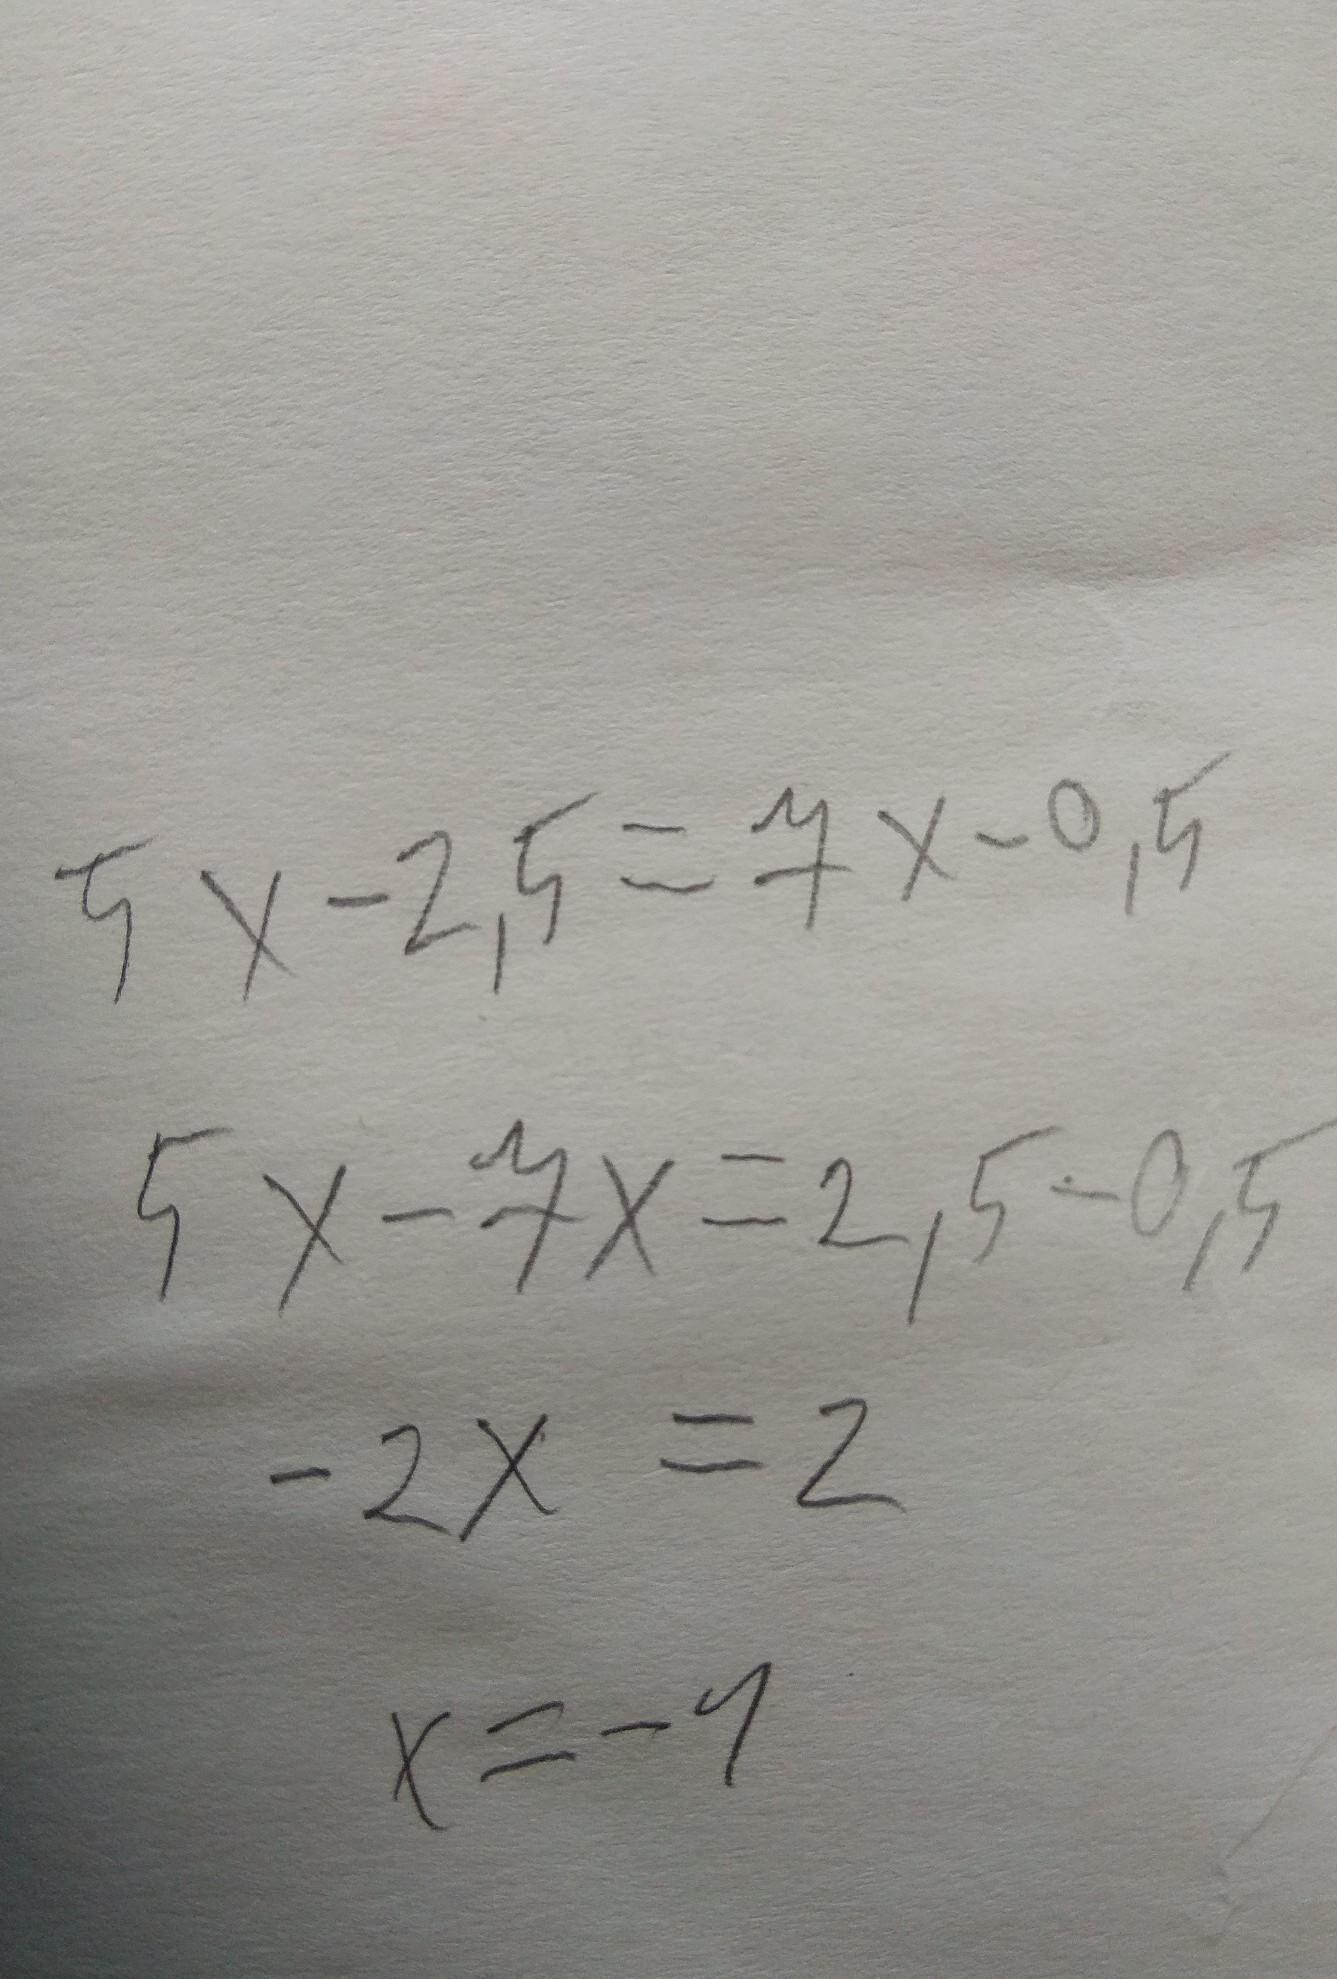 5x-2,5=7x-0,5
5x-7x=2,5-0,5
-2x=2
x=-1